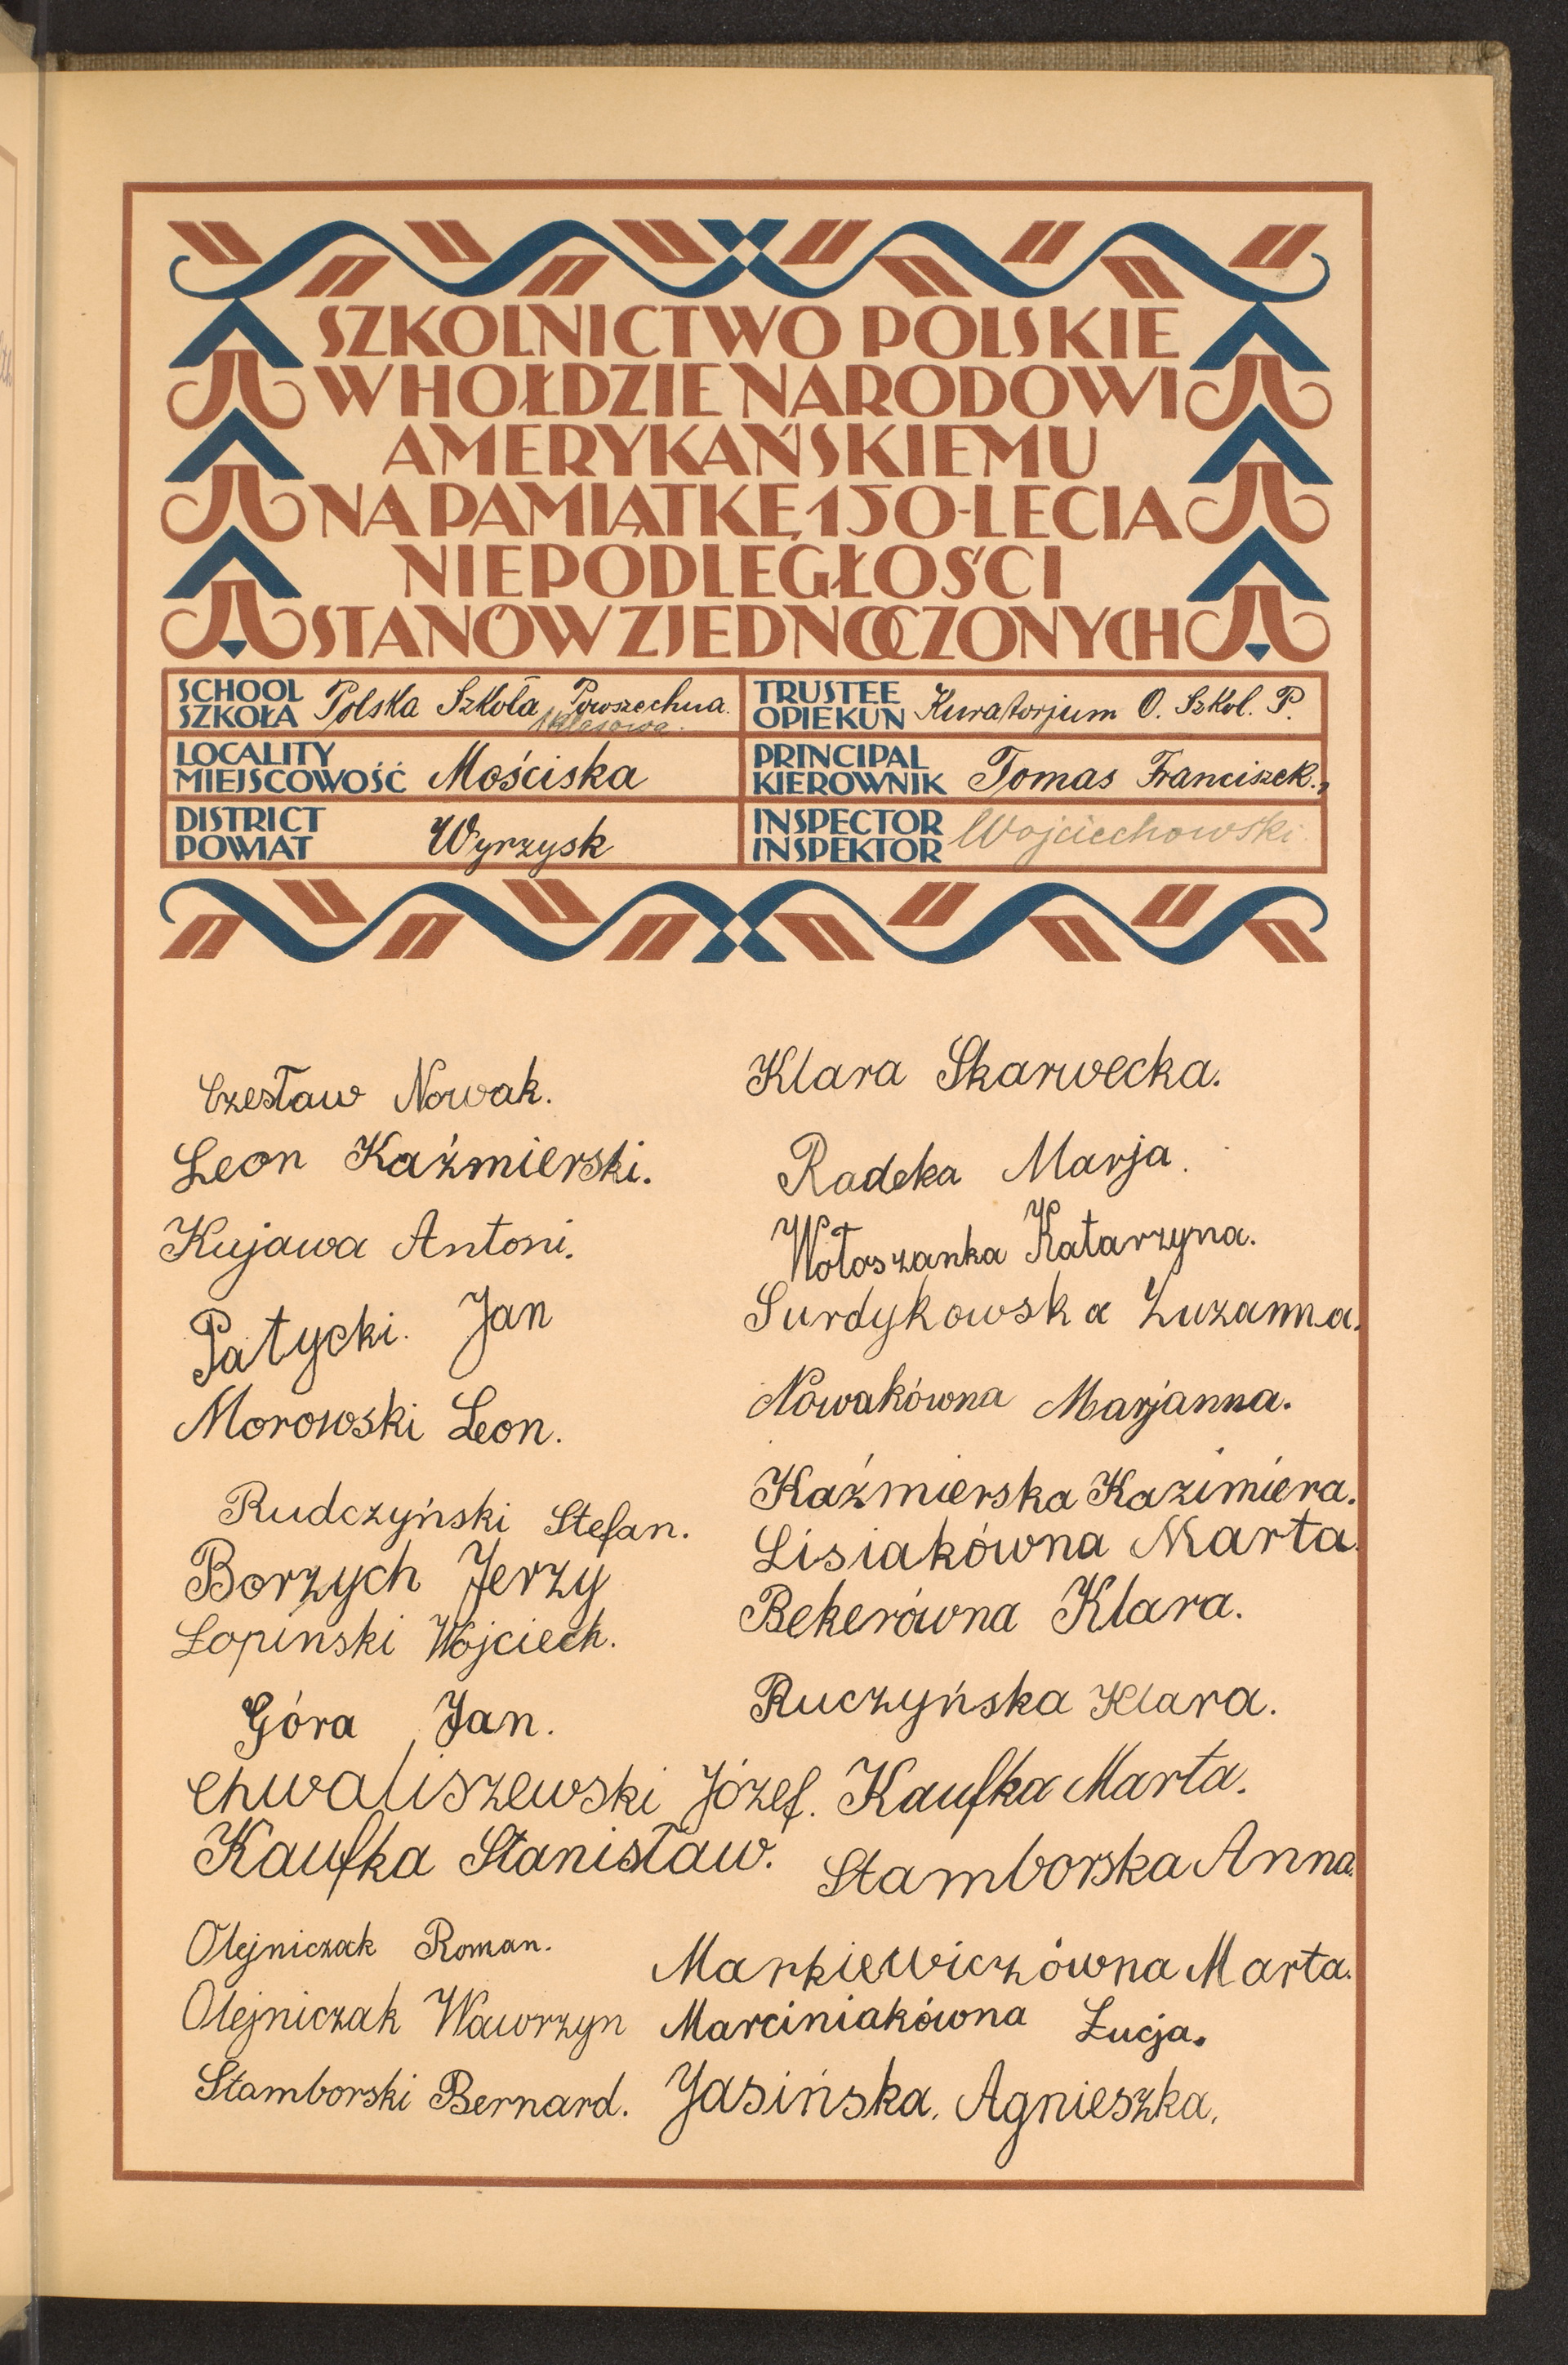 SZKOLNICTWO POLSKIE
W HOŁDZIE NARODOWI
AMERYKAŃSKIEMU
NA PAMIĄTKĘ 150-LECIA
NIEPODLEGŁOŚCI
STANÓW ZJEDNOCZONYCH
SCHOOL
SZKOŁA Polska Szkoła Powszechna.
1 klasowa.
TRUSTEE
OPIEKUN Kuratorjum O. Szkol. P.
LOCALITY
MIEJSCOWOŚĆ Mościska
PRINCIPAL
KIEROWNIK Tomas Franciszek.,
DISTRICT
POWIAT Wyrzysk
INSPECTOR
INSPEKTOR Wojciechowski
Czesław Nowak.
Leon Kaźmierski.
Kujawa Antoni.
Patycki. Jan
Morowski Leon.
Rudczyński Stefan.
Borzych Jerzy
Łopiński Wojciech.
Góra Jan.
Chwaliszewski Józef.
Kaufka Stanisław.
Olejniczak Roman.
Olejniczak Wawrzyn
Stamborski Bernard.
Klara Skarwecka.
Radeka Marja.
Wołoszanka Katarzyna.
Surdykowska Zuzanna.
Nowakówna Marjanna.
Kaźmierska Kazimiera.
Lisiakówna Marta.
Bekerówna Klara.
Ruczyńska Klara.
Kaufka Marta.
Stamborska Anna.
Markiewiczówna Marta.
Marciniakówna Łucja.
Jasińska, Agnieszka,